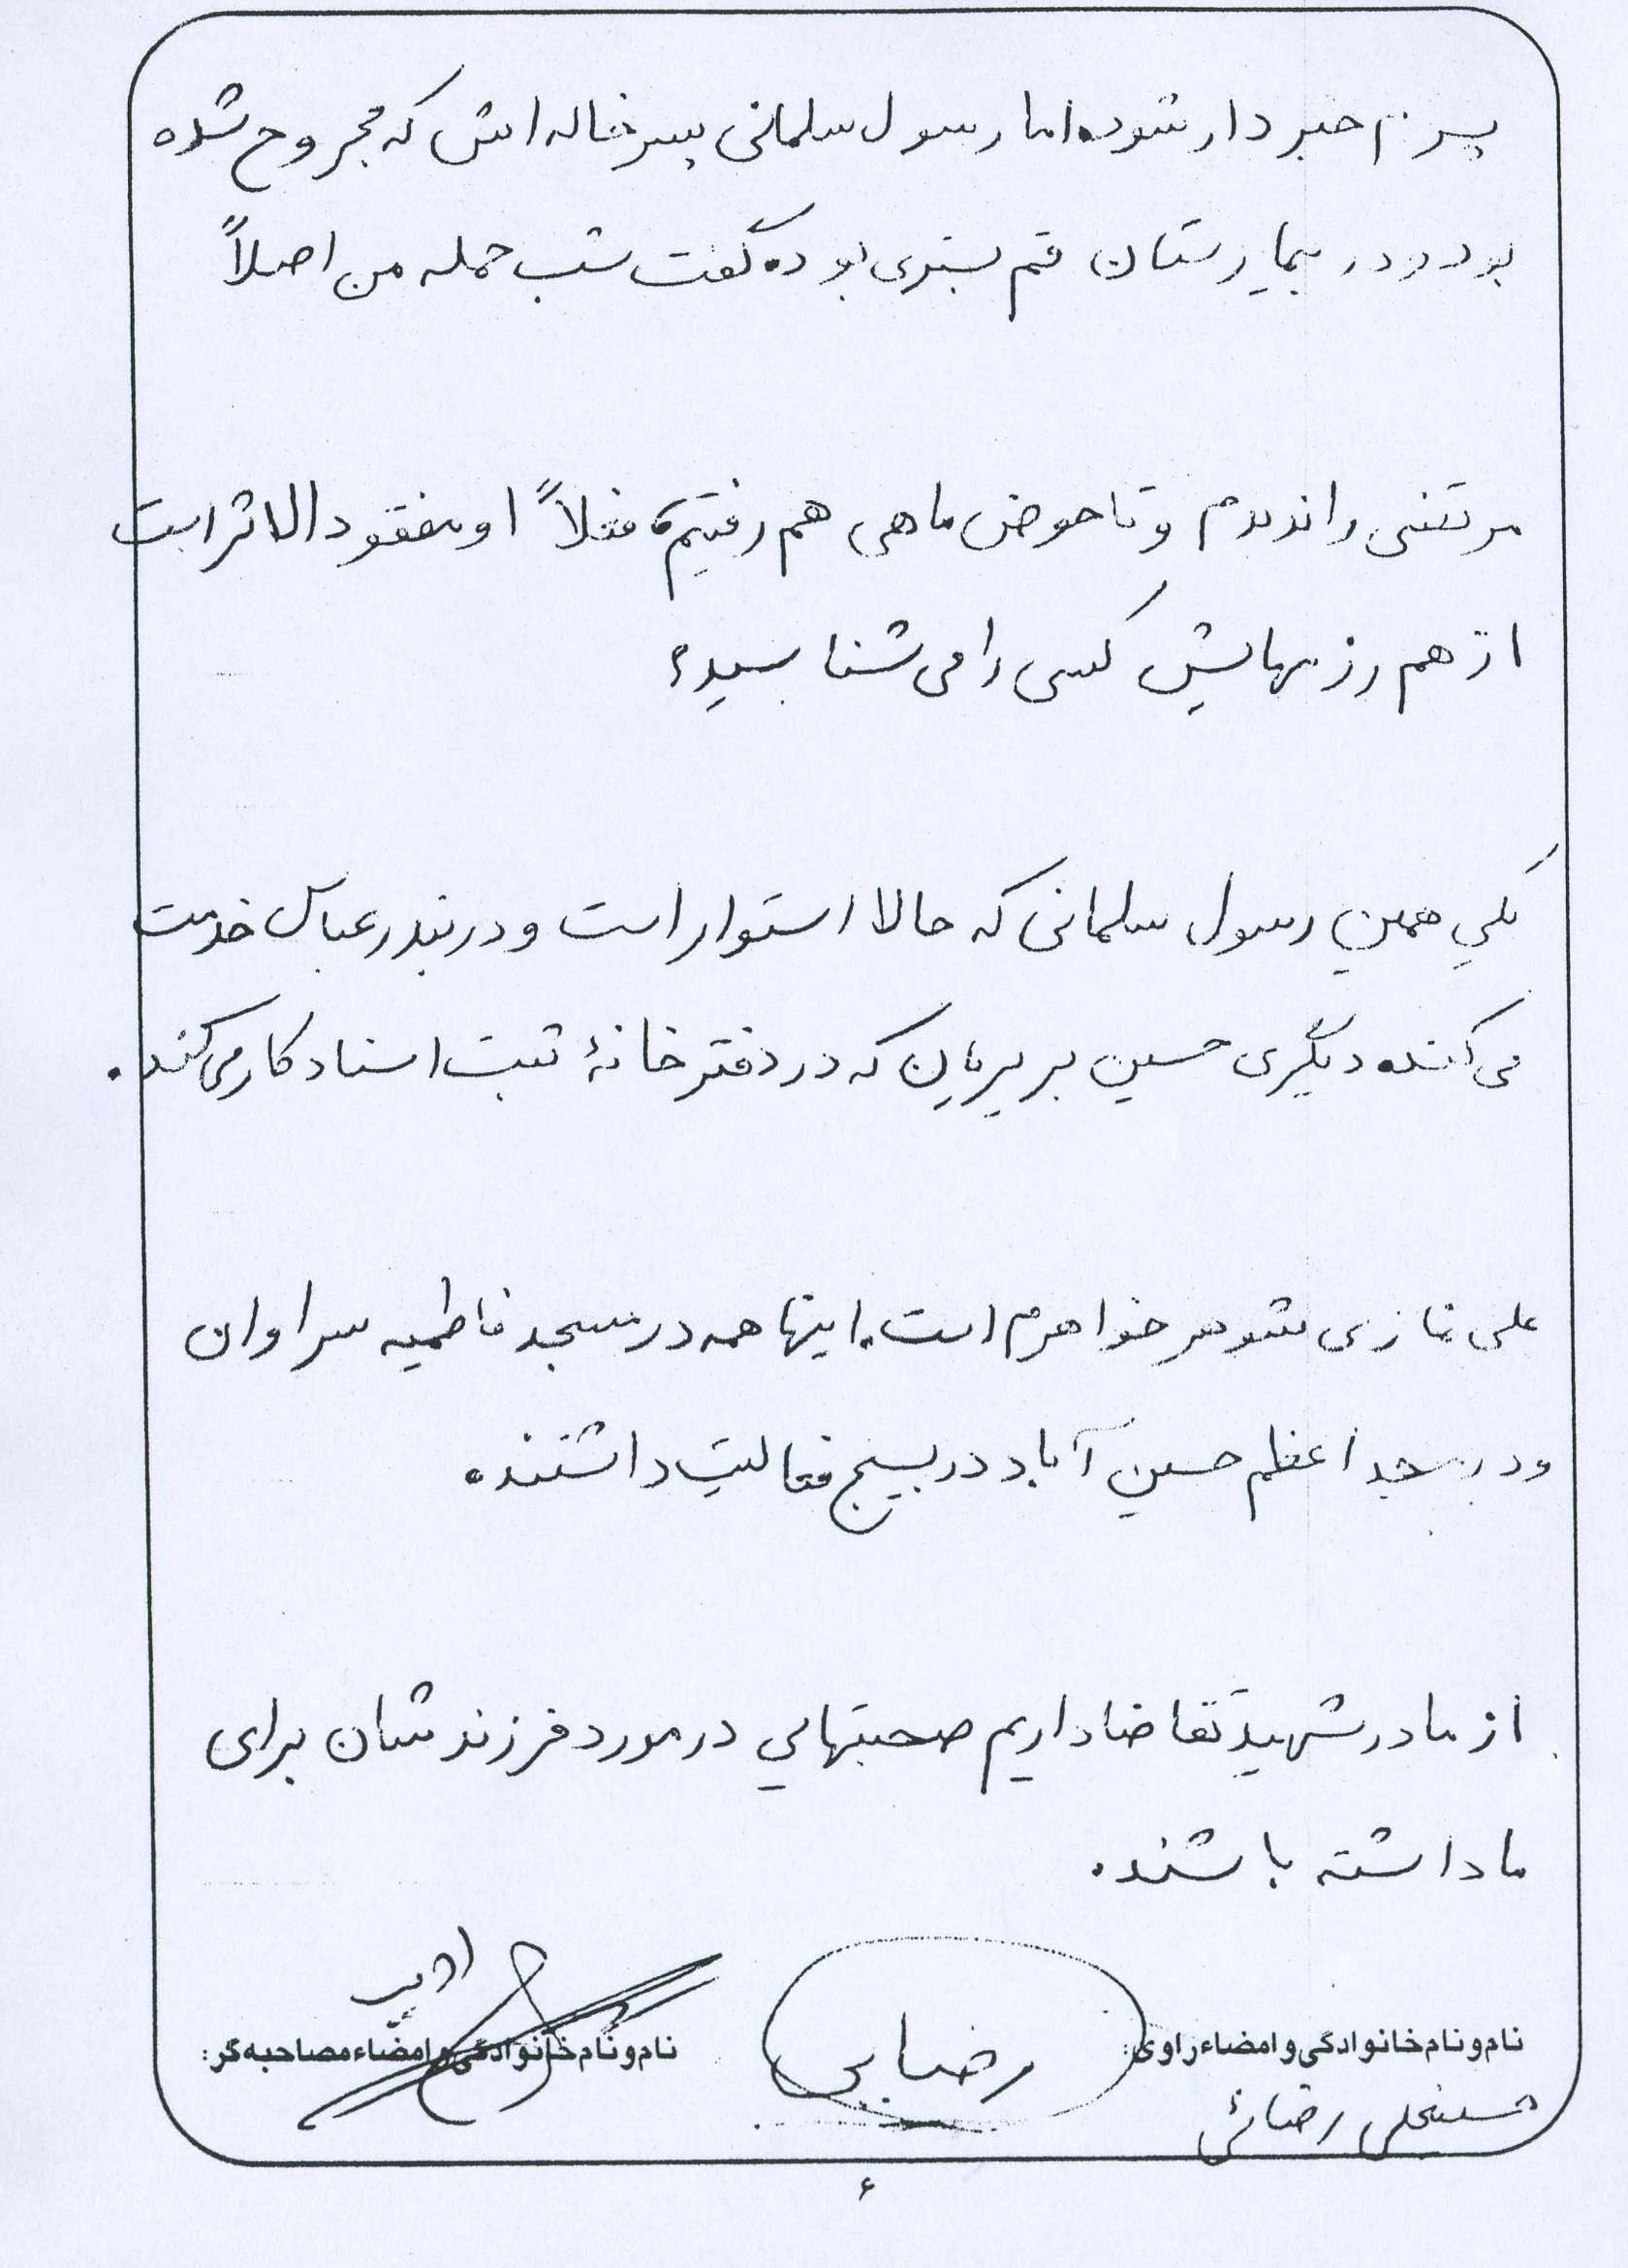 پسرم خبردار شود. اما رسول سلمانی پسرخاله‌اش که مجروح شده
بود و در بیمارستان قم بستری بوده گفت شب حمله من اصلاً
مرتضی را ندیدم و تا حوض ماهی هم رفتیم، فعلاً او مفقودالاثر است
از هم رزمهایش کسی را می‌شناسید؟
یکی همین رسول سلمانی که حالا استوار است و در بندرعباس خدمت
می‌کند. دیگری حسین بریریان که در دفترخانهٔ ثبت اسناد کار می‌کند.
علی نمازی شوهر خواهرم است. اینها همه در مسجد فاطمیه سراوان
و در مسجد اعظم حسین آباد در بسیج فعالیت داشتند.
از مادر شهید تقاضا داریم صحبتهایی در مورد فرزندشان برای
ما داشته باشند.
نام و نام خانوادگی و امضاء راوی:
رضایی
نام و نام خانوادگی و امضاء مصاحبه‌گر:
ادیب
رضائی
۶